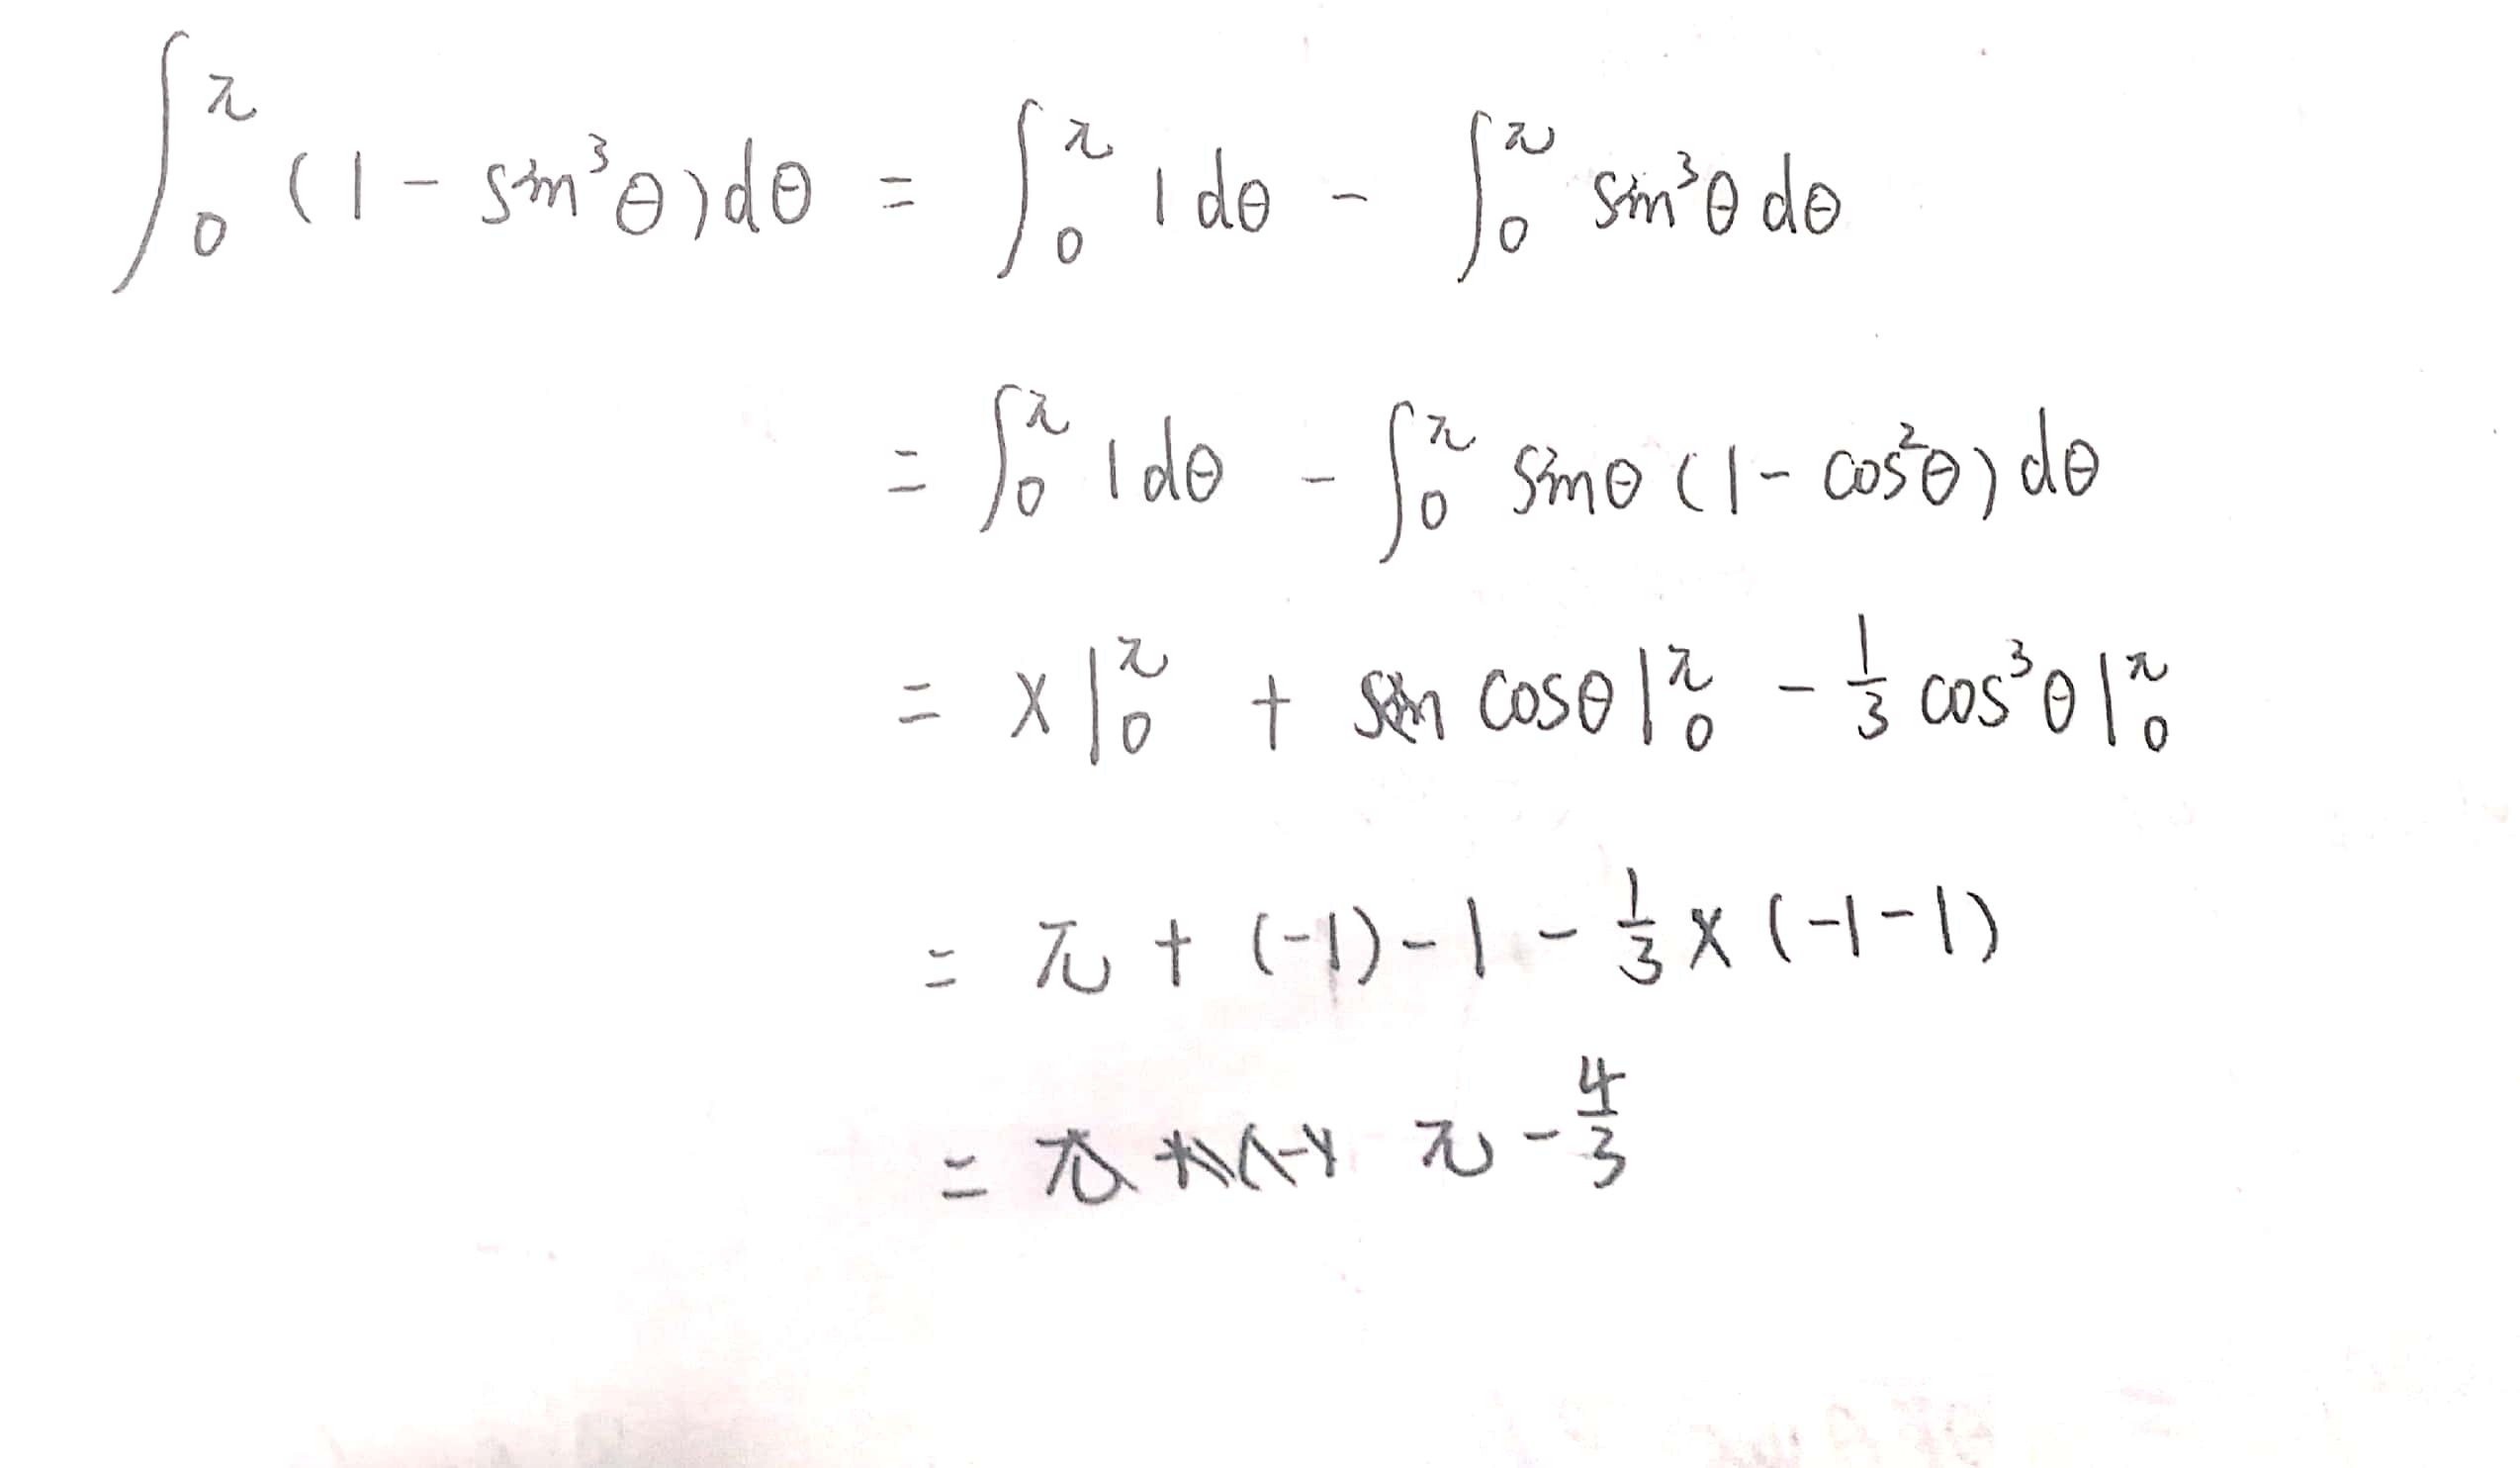 ∫₀^π (1 - sin³θ)dθ = ∫₀^π 1 dθ - ∫₀^π sin³θ dθ
= ∫₀^π 1 dθ - ∫₀^π sinθ (1 - cos²θ) dθ
= x|₀^π + cosθ|₀^π - 1/3 cos³θ|₀^π
= π + (-1) - 1 - 1/3 × (-1-1)
= π - 4/3